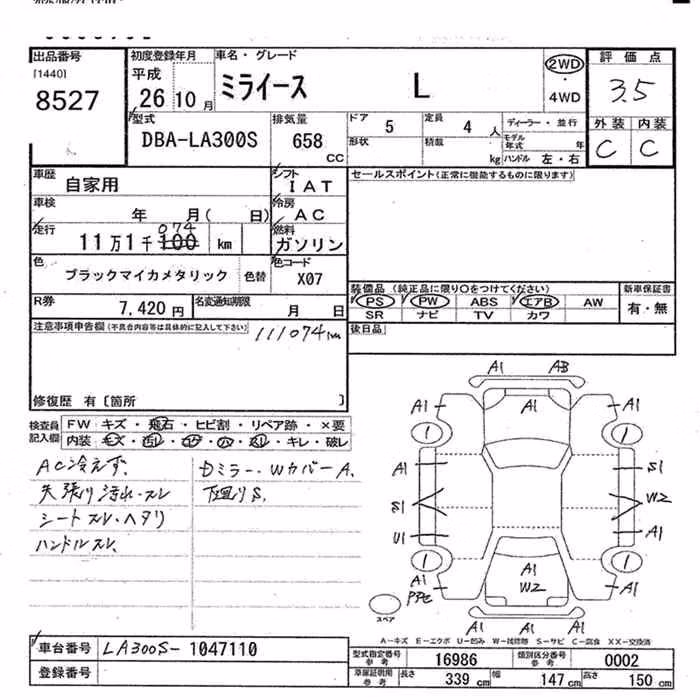 出品番号
[1440]
8527
初度登録年月
平成
26年10月
車名・グレード
ミライース L
2WD
・
4WD
評価点
3.5
外装 内装
C C
型式
DBA-LA300S
排気量
658
CC
ドア 5
定員 4 人
形状
積載 kg
ディーラー・並行
モデル年式 年
ハンドル 左・右
車歴
自家用
シフト
IAT
車検
年 月( 日)
冷房
AC
走行
11万1千100 km
074
燃料
ガソリン
色
ブラックマイカメタリック
色替
色コード
X07
R券
7,420円
名変通知期限
月 日
セールスポイント(正常に機能するものに限ります)
装備品(純正品に限り○をつけてください)
PS PW ABS エアB AW
SR ナビ TV カワ
新車保証書
有・無
後日品
注意事項申告欄(不具合内容等は具体的に記入して下さい)
111074km
修復歴 有〔箇所 〕
検査員記入欄
FW キズ・飛石・ヒビ割・リペア跡・×要
内装・キレ・破レ
AC冷えず、
天張り汚れ・スレ
シートスレ・ヘタリ
ハンドルスレ、
ミラー・WカバーA、
下廻りS、
A1 AB
A1 A1 A1
1 1
A1 S1
S1 W2
U1 A1
1 1
A1 A1 A1
PPE W2
A1 A1
スペア
A-キズ E-エクボ U-凹み W-補修跡 S-サビ C-腐食 XX-交換済
車台番号
LA300S-1047110
登録番号
型式指定番号
参考
16986
類別区分番号
参考
0002
車庫証明用
参考
長さ 339 cm
幅 147 cm
高さ 150 cm